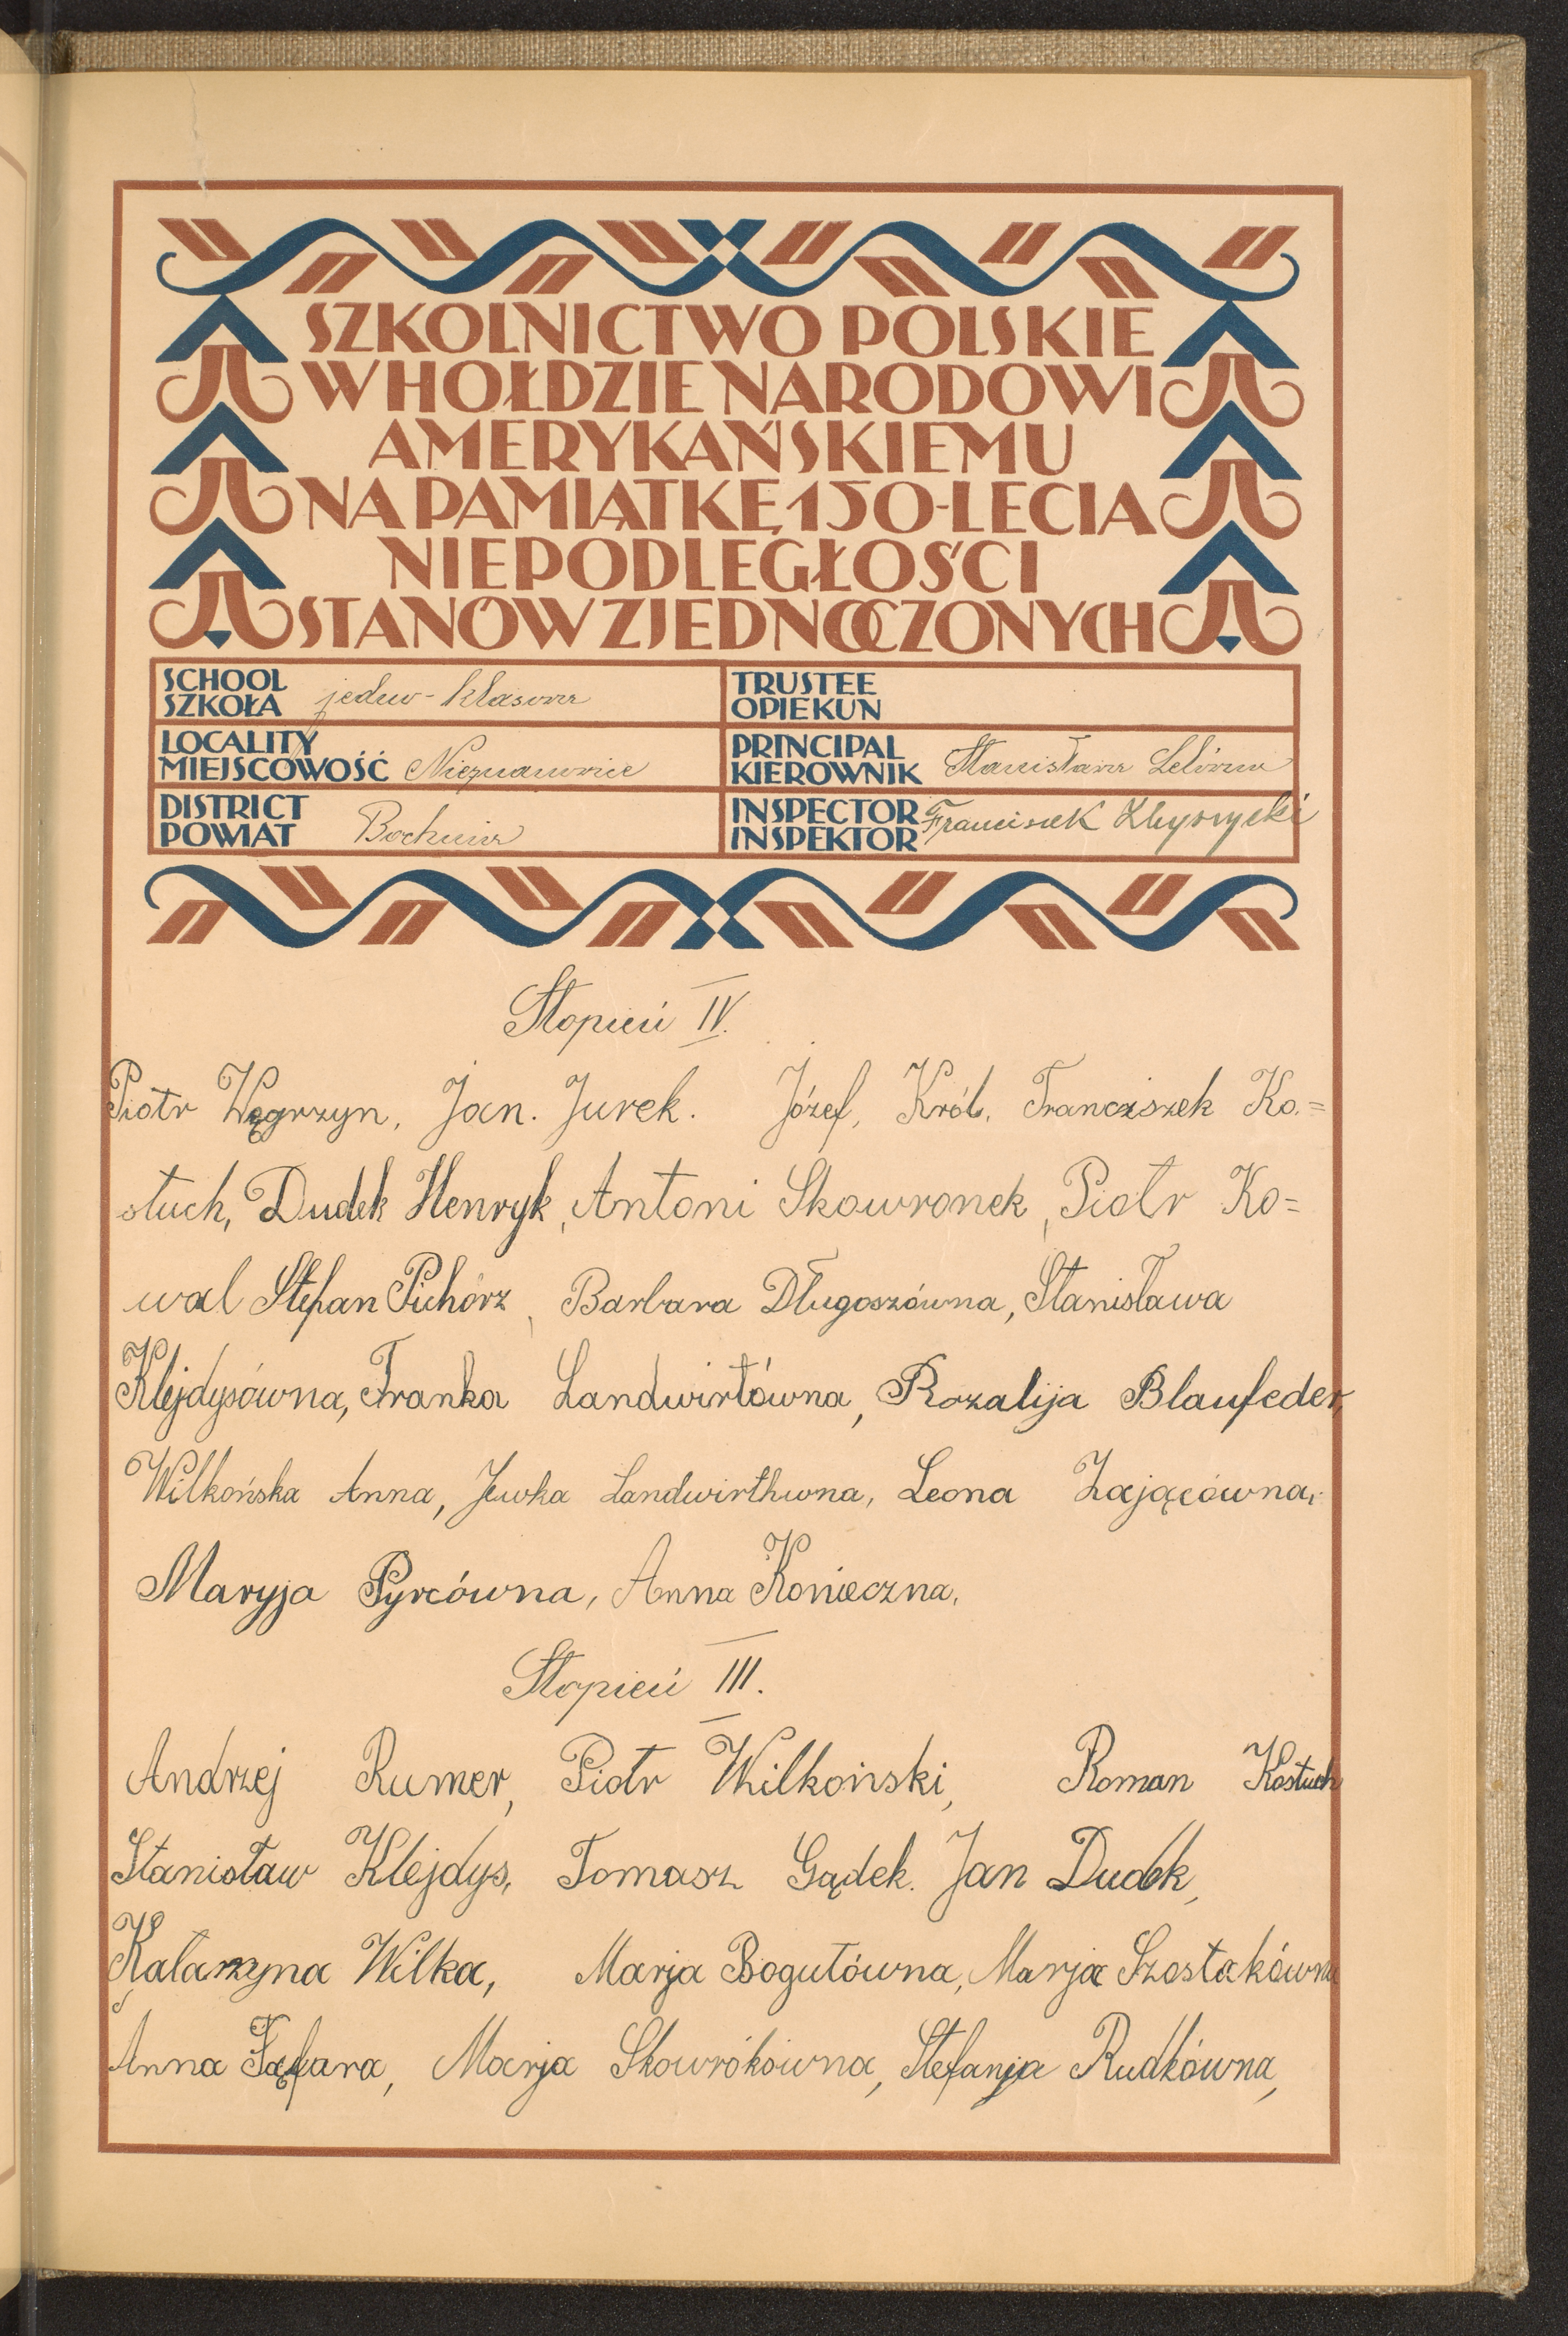 SZKOLNICTWO POLSKIE
W HOŁDZIE NARODOWI
AMERYKAŃSKIEMU
NA PAMIĄTKĘ 150-LECIA
NIEPODLEGŁOŚCI
STANÓW ZJEDNOCZONYCH
SCHOOL
SZKOŁA jedno-klasowa
TRUSTEE
OPIEKUN
LOCALITY
MIEJSCOWOŚĆ Nieznanowice
PRINCIPAL
KIEROWNIK Stanisława
DISTRICT
POWIAT Bochnia
INSPECTOR
INSPEKTOR Franciszek
Stopień IV.
Piotr Węgrzyn, Jan. Jurek. Józef, Król, Franciszek Ko.=
stuch, Dudek Henryk, Antoni Skowronek, Piotr Ko=
wal Stefan Pichórz, Barbara Długoszówna, Stanisława
Klejdysówna, Franka Landwirtówna, Rozalija Blaufeder,
Wilkońska Anna, Jewka Landwirthwna, Leona Zającówna,
Maryja Pyrcówna, Anna Konieczna,
Stopień III.
Andrzej Rumer, Piotr Wilkoński, Roman Kostuch
Stanisław Klejdys, Tomasz Gądek. Jan Dudek,
Katarzyna Wilka, Marja Bogutówna, Marja Szostakówna
Anna Marja Skowrókówna, Stefanja Rudkówna,